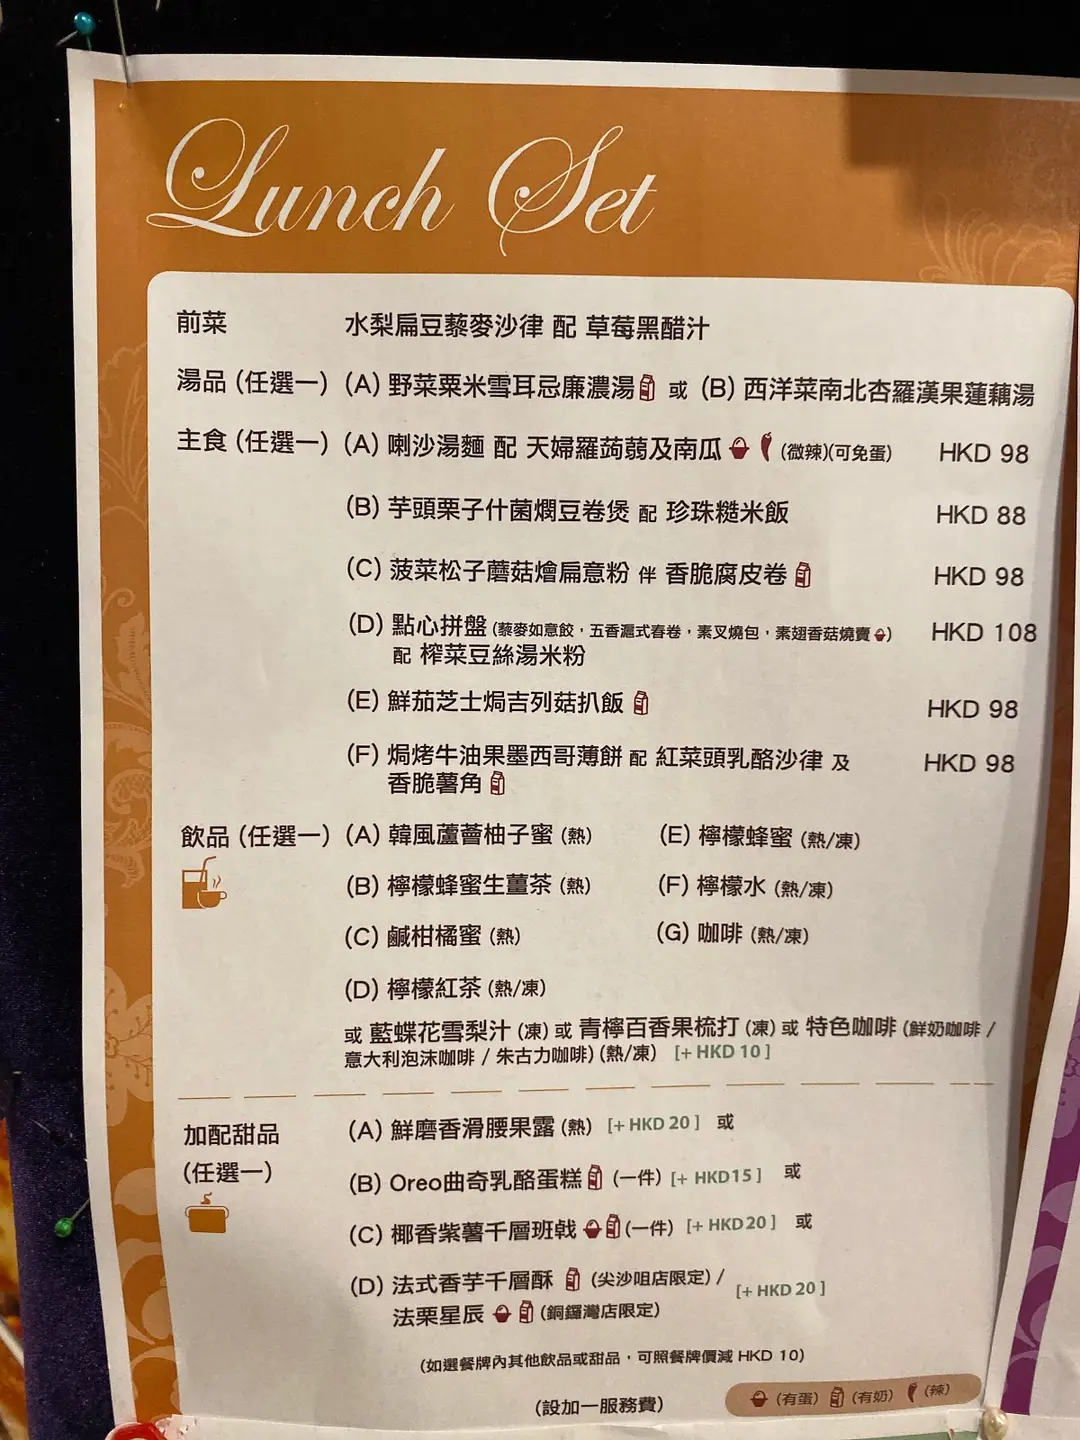 Lunch Set
前菜 水梨扁豆藜麥沙律 配 草莓黑醋汁
湯品 (任選一) (A) 野菜粟米雪耳忌廉濃湯 或 (B) 西洋菜南北杏羅漢果蓮藕湯
主食 (任選一) (A) 喇沙湯麵 配 天婦羅蒟蒻及南瓜 (微辣)(可免蛋) HKD 98
(B) 芋頭栗子什菌燜豆卷煲 配 珍珠糙米飯 HKD 88
(C) 菠菜松子蘑菇燴扁意粉 伴 香脆腐皮卷 HKD 98
(D) 點心拼盤 (藜麥如意餃，五香滬式春卷，素叉燒包，素翅香菇燒賣) HKD 108
配 榨菜豆絲湯米粉
(E) 鮮茄芝士焗吉列菇扒飯 HKD 98
(F) 焗烤牛油果墨西哥薄餅 配 紅菜頭乳酪沙律 及 HKD 98
香脆薯角
飲品 (任選一) (A) 韓風蘆薈柚子蜜 (熱) (E) 檸檬蜂蜜 (熱/凍)
(B) 檸檬蜂蜜生薑茶 (熱) (F) 檸檬水 (熱/凍)
(C) 鹹柑橘蜜 (熱) (G) 咖啡 (熱/凍)
(D) 檸檬紅茶 (熱/凍)
或 藍蝶花雪梨汁 (凍) 或 青檸百香果梳打 (凍) 或 特色咖啡 (鮮奶咖啡 /
意大利泡沫咖啡 / 朱古力咖啡) (熱/凍) [+ HKD 10 ]
加配甜品 (A) 鮮磨香滑腰果露 (熱) [+ HKD 20 ] 或
(任選一) (B) Oreo曲奇乳酪蛋糕 (一件) [+ HKD15 ] 或
(C) 椰香紫薯千層班戟 (一件) [+ HKD 20 ] 或
(D) 法式香芋千層酥 (尖沙咀店限定) / [+ HKD 20 ]
法栗星辰 (銅鑼灣店限定)
(如選餐牌內其他飲品或甜品，可照餐牌價減 HKD 10)
(設加一服務費) (有蛋) (有奶) (辣)